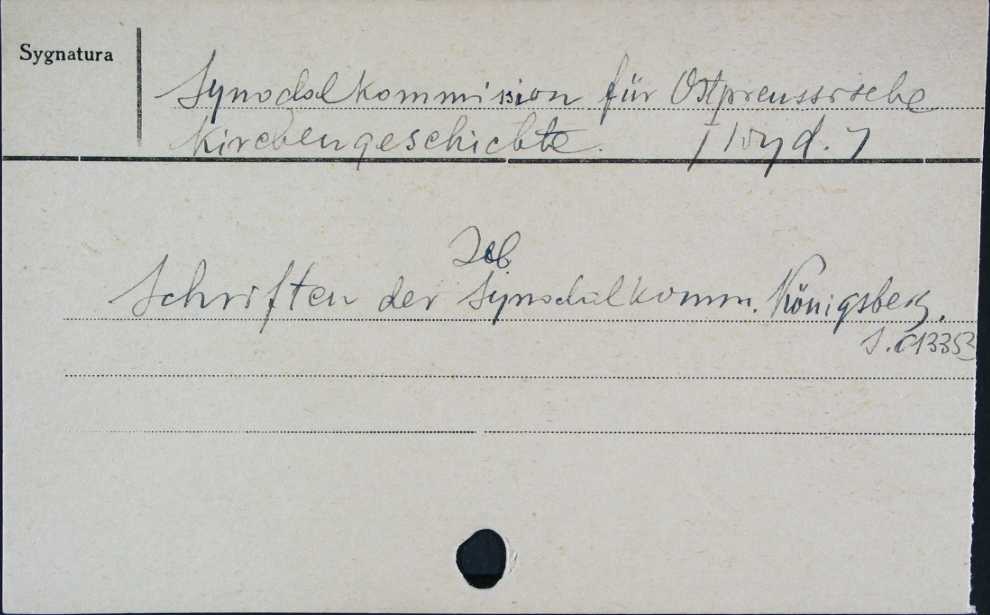 Sygnatura
Synodalkommission für Ostpreussische
Kirchengeschichte. / Wyd. /
Schriften der Synodalkomm. Königsberg.